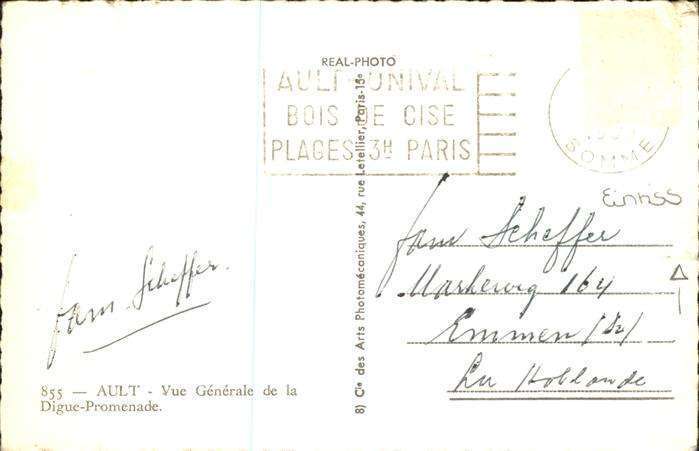 REAL-PHOTO
AULT-ONIVAL
BOIS DE CISE
PLAGES 3H PARIS
SOMME
Einriss
Fam Scheffer
164
Emmen (Dr)
La Hollande
Fam. Scheffer.
855 — AULT - Vue Générale de la
Digue-Promenade.
8) Cie des Arts Photomécaniques, 44, rue Letellier, Paris-15e